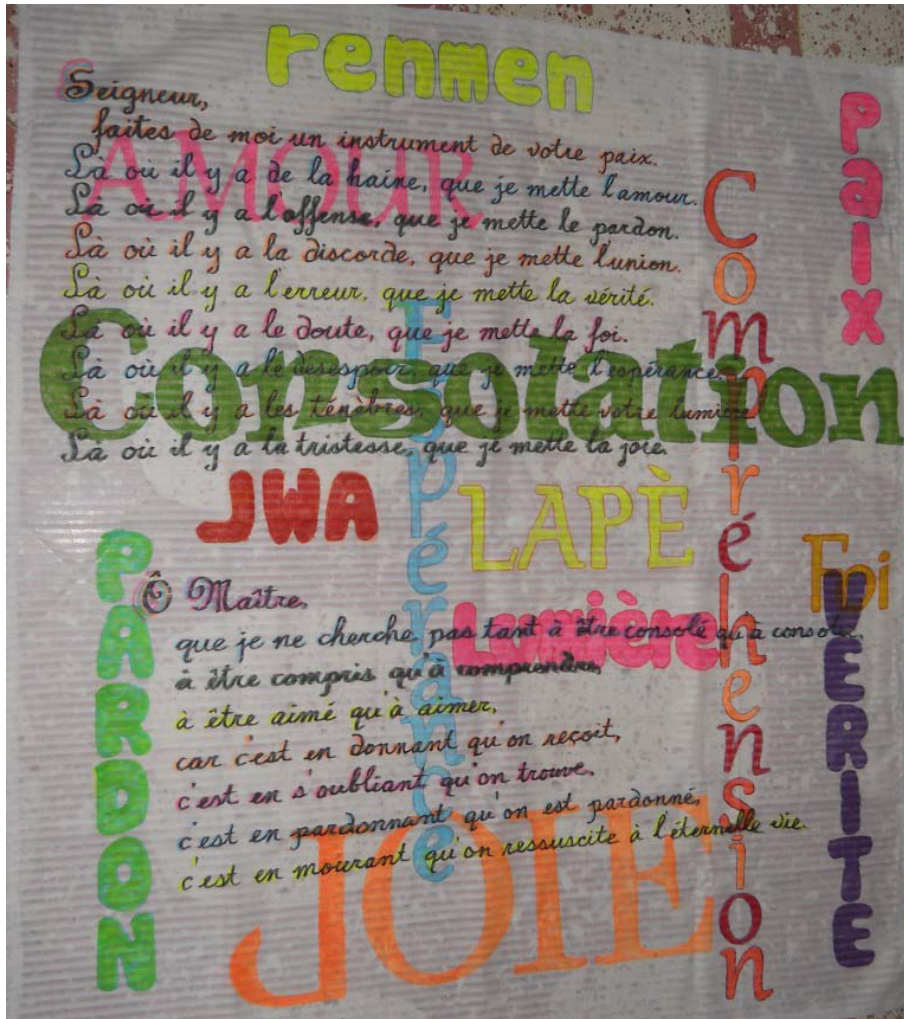 renmen
Seigneur,
faites de moi un instrument de votre paix.
AMOUR
Là où il y a de la haine, que je mette l'amour.
Là où il y a l'offense, que je mette le pardon.
Là où il y a la discorde, que je mette l'union.
Là où il y a l'erreur, que je mette la vérité.
Là où il y a le doute, que je mette la foi.
Là où il y a le désespoir, que je mette l'espérance.
Là où il y a les ténèbres, que je mette votre lumière.
Là où il y a la tristesse, que je mette la joie.
Paix
Compréhension
Consolation
Espérance
JWA
LAPÈ
Foi
VERITE
PARDON
Lumière
Ô Maître,
que je ne cherche pas tant à être consolé qu'à consoler,
à être compris qu'à comprendre,
à être aimé qu'à aimer,
car c'est en donnant qu'on reçoit,
c'est en s'oubliant qu'on trouve,
c'est en pardonnant qu'on est pardonné,
c'est en mourant qu'on ressuscite à l'éternelle vie.
JOIE